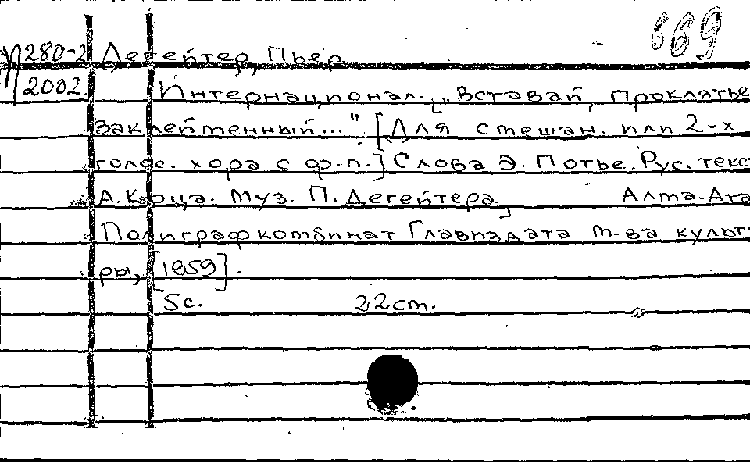 669
П280-2 Дегейтер, Пьер
2002. Интернационал. „Вставай, проклятье
заклейменный..." [Для смешан. или 2-х
голос. хора с ф-п.] Слова Э. Потье. Рус. текс
А. Коца. Муз. П. Дегейтера Алма-Ата
Полиграфкомбинат Главиздата М-ва культ
ры, [1959].
5с. 22 cm.